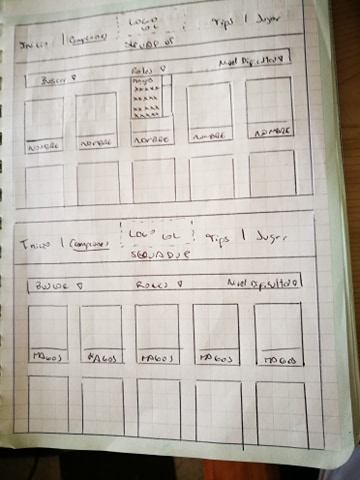 Inicio | Campeones LOGO LOL Tips | Jugar
Buscar Roles Nivel Dificultad
Magos
xxxxx
xxxxx
xxxxx
xxxxx
NOMBRE NOMBRE NOMBRE NOMBRE NOMBRE
Inicio | Campeones LOGO LOL Tips | Jugar
Buscar Roles Nivel Dificultad
MAGOS MAGOS MAGOS MAGOS MAGOS